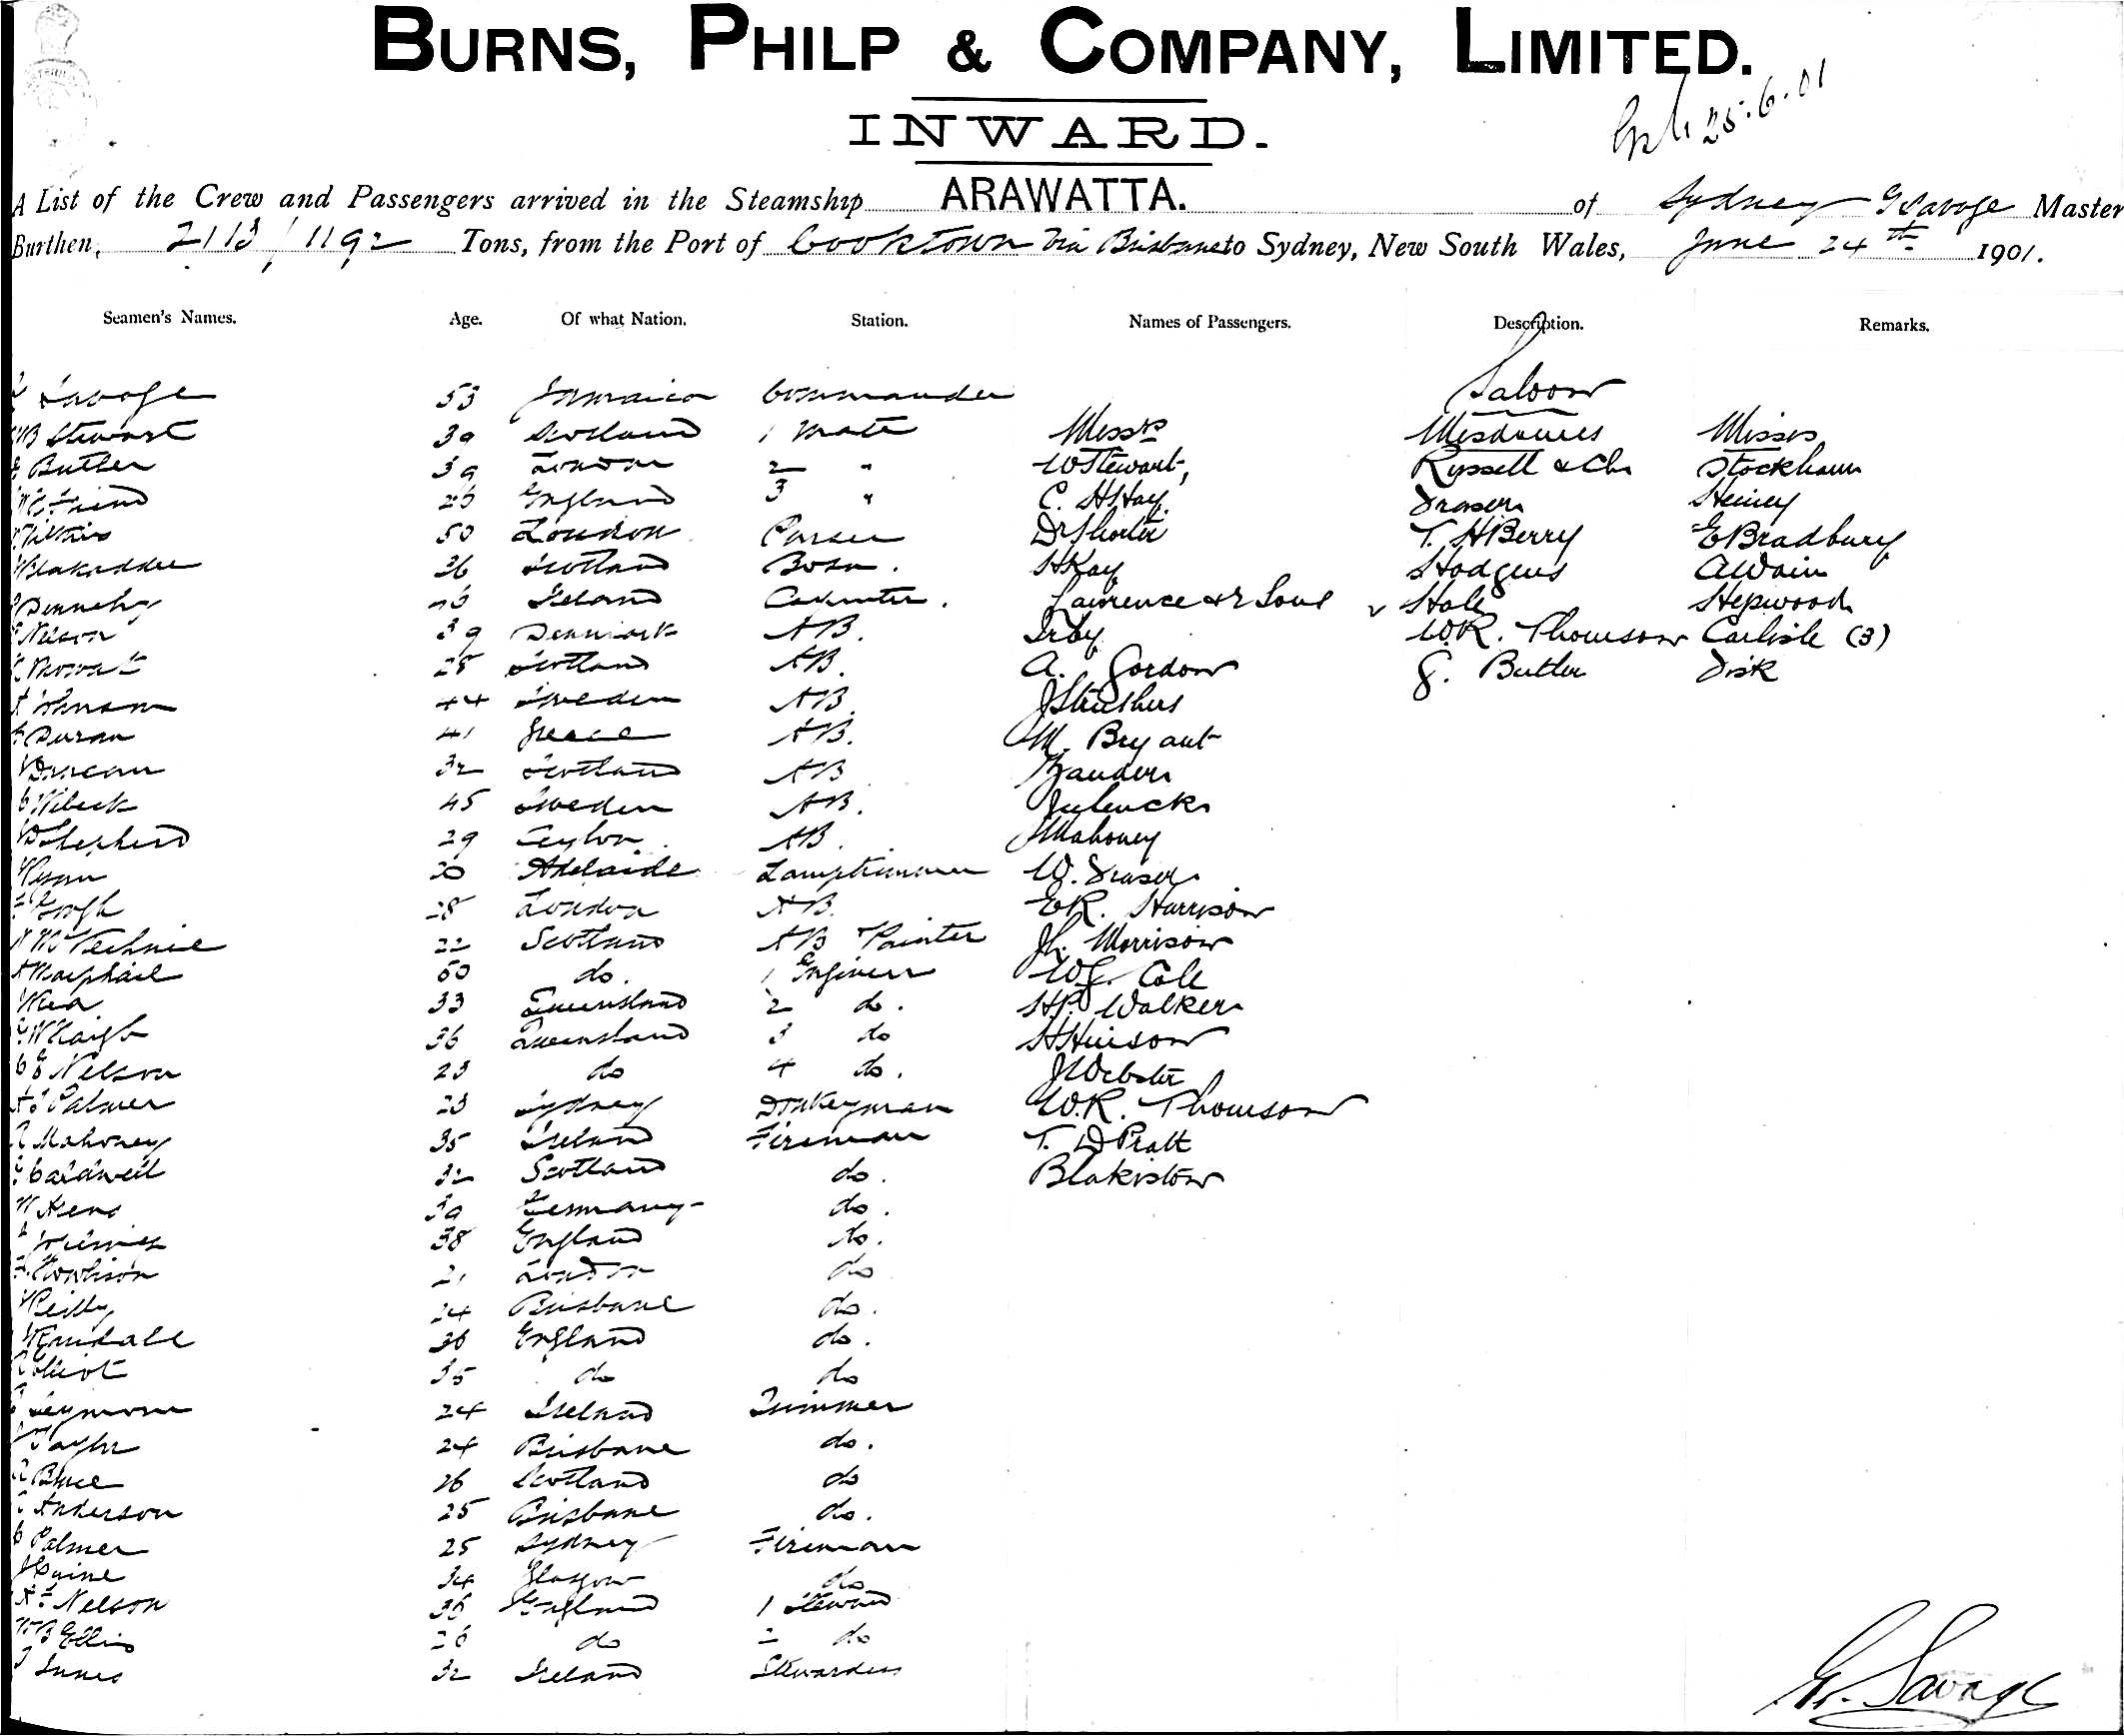 BURNS, PHILP & COMPANY, LIMITED.
25.6.01
INWARD.
A List of the Crew and Passengers arrived in the Steamship ARAWATTA. of Sydney G Savage Master
Burthen, 2113 / 1192 Tons, from the Port of Cooktown via Brisbane to Sydney, New South Wales, June 24th 1901.
Seamen's Names. Age. Of what Nation. Station. Names of Passengers. Description. Remarks.
Saloon
Savage 53 Jamaica Commander
Stewart 39 Scotland 1 Mate Messrs Mesdames Misses
Butler 39 London 2 " W Stewart, Russell & Ch Stockham
Friend England 3 " C. H Hay Fraser Heiney
Wilkins 50 London Purser Dr Shorter T. H Berry E Bradbury
Blakadder 36 Scotland Bosn. H Kay Hodgens A Wain
Dennehy Ireland Carpenter. Lawrence & 2 Sons Hale Hepwood
Nelson 39 Denmark AB. Irby W.R. Thomson Carlisle (3)
Mowat 28 Scotland AB. A. Gordon G. Butler Fisk
Johnson 44 Sweden AB. J Struthers
Duran 41 Greece AB. M. Bryant
Duncan 32 Scotland AB Zander
Wibeck 45 Sweden AB.
Shepherd 29 Ceylon. AB. J Mahoney
Ryan 20 Adelaide Lamptrimmer W. Fraser
Gough 28 London AB. E R. Harrison
McKechnie 22 Scotland AB Painter J L. Morrison
Macphail 50 do. 1 Engineer W J. Cole
Rea 33 Queensland 2 do. H P. Walker
W Haigh 36 Queensland 3 do H Hinson
Nelson 23 do 4 do. J Webster
Palmer 23 Sydney Donkeyman W.R. Thomson
Mahoney 35 Ireland Fireman T. D Pratt
Caldwell 32 Scotland do. Blakiston
Kens 39 Germany do.
38 England do.
Howlison 21 London do
Reilly 24 Brisbane do.
Randall 36 England do.
Elliot 35 do do
Seymour 24 Ireland Trimmer
Taylor 24 Brisbane do.
Bruce 26 Scotland do
Anderson 25 Brisbane do.
C Palmer 25 Sydney Fireman
Paine 34 Glasgow do
Nelson 36 England 1 Steward
W B Ellis 26 do 2 do
Innes 32 Ireland Stewardess
G. Savage